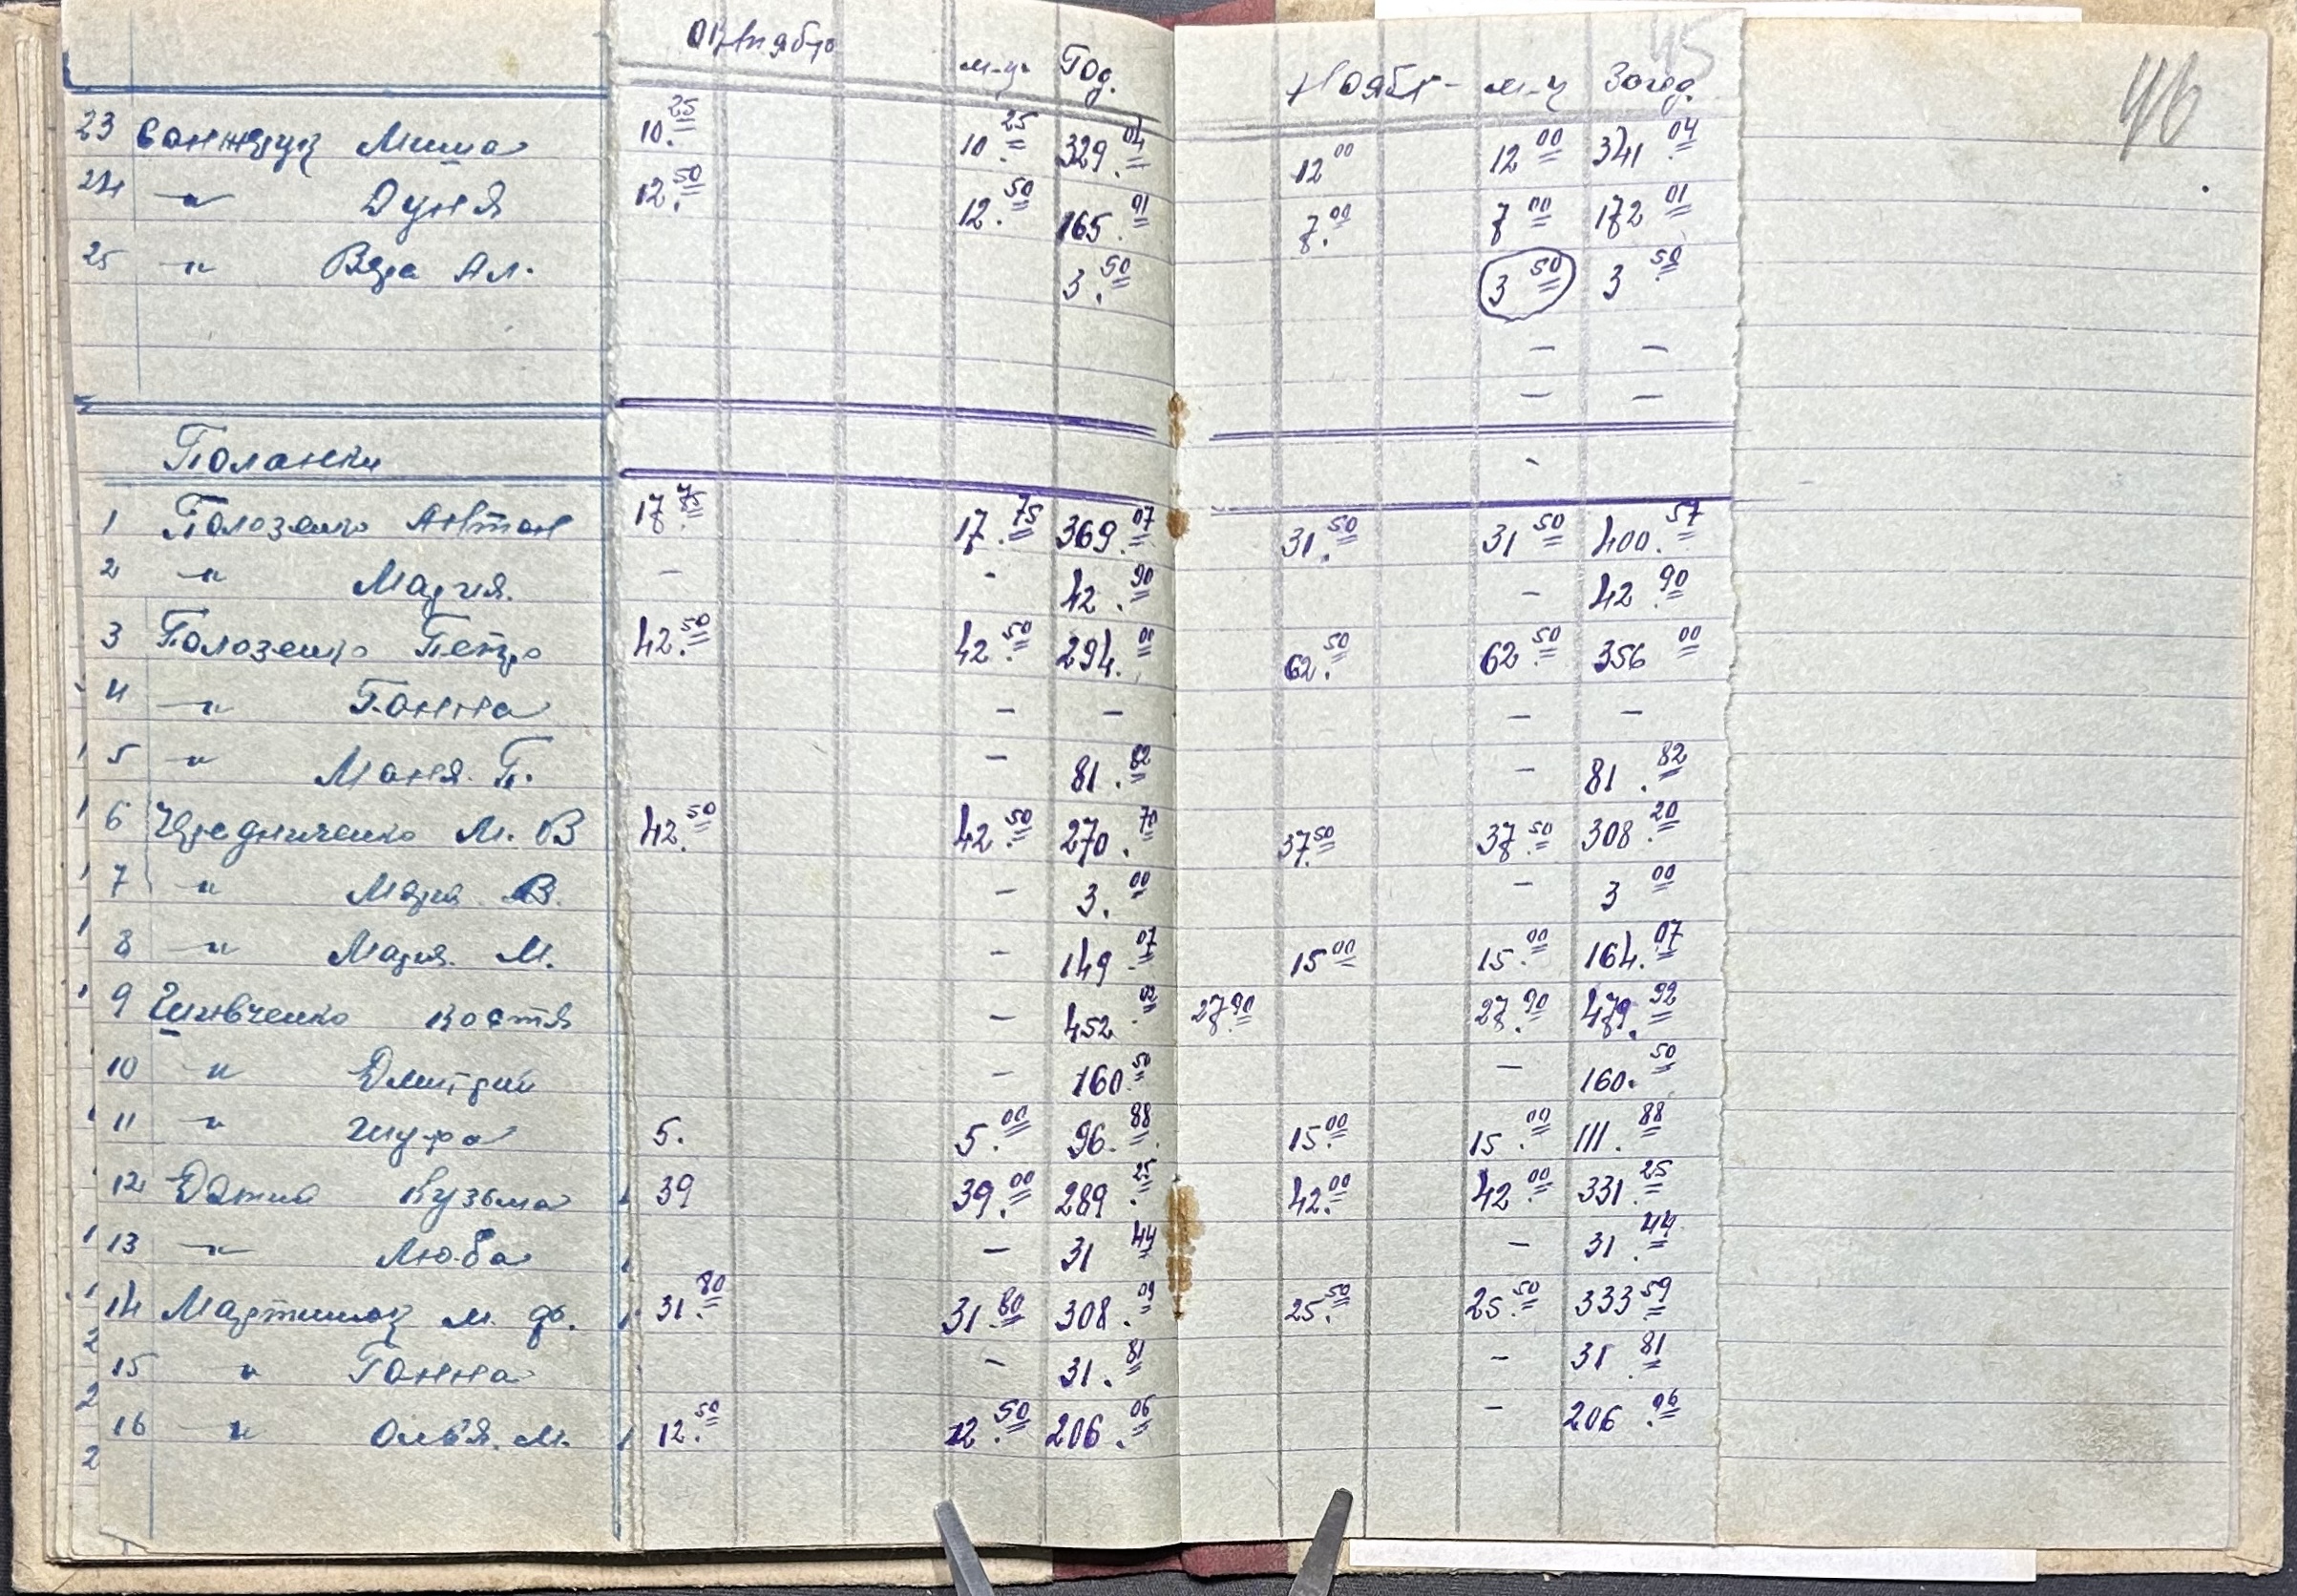 Октябрь м-ц Год. Ноябрь м-ц За год. 45 46
23 Санжарук Миша 10.25 10.25 329.04 12 00 12 00 341.04
24 -"- Дуня 12.50 12.50 165.01 7.00 7 00 172 01
25 -"- Вера Ал. 3.50 3 50 3 50
- -
- -
Поланки
1 Полозенко Антон 17 75 17.75 369.07 31.50 31 50 400.57
2 -"- Мария. - - 42.90 - 42.90
3 Полозенко Петро 42.50 42.50 294.00 62.50 62.50 356 00
4 -"- Ганна - - - -
5 -"- Маня. П. - 81.82 - 81.82
6 Чередниченко М. В 42.50 42.50 270.70 37 50 37.50 308.20
7 -"- Мария В. - 3.00 - 3 00
8 -"- Мария. М. - 149.07 15 00 15.00 164.07
9 Шевченко Костя - 452.02 27.90 27.90 479.92
10 -"- Дмитрий - 160.50 - 160.50
11 -"- Шура 5. 5.00 96.88 15.00 15.00 111.88
12 Кузьма 39 39.00 289.25 42.00 42.00 331.25
13 -"- Люба - 31 44 - 31.44
14 Мартинюк М. Ф. 31.80 31.80 308.09 25.50 25.50 333 59
15 -" Ганна - 31.81 - 31 81
16 -"- Оль'я. М. 12.50 12.50 206.06 - 206.06